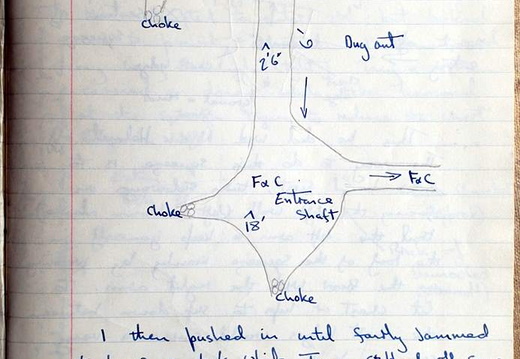 choke
2'6"
Dug out
F&C
Entrance
Shaft
F&C
choke
18'
choke
I then pushed in until fairly jammed